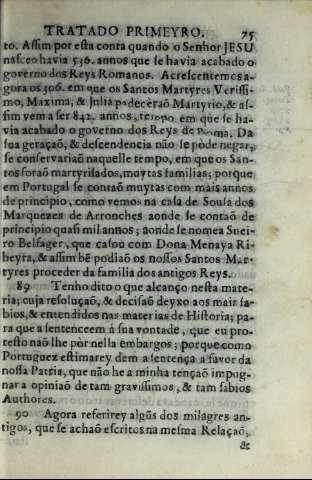 TRATADO PRIMEYRO. 75
to. Aſſim por eſta conta quando o Senhor JESU
naſceo havia 536. annos que ſe havia acabado o
governo dos Reys Romanos. Acreſcentemos a-
gora os 306. em que os Santos Martyres Veriſſi-
mo, Maxima, & Julia padecèraõ Martyrio, & aſ-
ſim vem a ſer 842. annos, tempo em que ſe ha-
via acabado o governo dos Reys de Roma. Da
ſua geraçaõ, & deſcendencia não ſe pòde negar,
ſe conſervariaõ naquelle tempo, em que os San-
tos foraõ martyriſados, muytas familias; porque
em Portugal ſe contaõ muytas com mais annos
de principio, como vemos na caſa de Souſa dos
Marquezes de Arronches aonde ſe contaõ de
principio quaſi mil annos; aonde ſe nomea Suei-
ro Belfager, que caſou com Dona Menaya Ri-
beyra, & aſſim bẽ podiaõ os noſſos Santos Mar-
tyres proceder da familia dos antigos Reys.
89 Tenho dito o que alcanço neſta mate-
ria; cuja reſoluçaõ, & deciſaõ deyxo aos mais ſa-
bios, & entendidos nas materias de Hiſtoria; pa-
ra que a ſentenceem á ſua vontade, que eu pro-
teſto naõ lhe pòr nella embargos; porque como
Portuguez eſtimarey dem a ſentença a favor da
noſſa Patria, que não he a minha tençaõ impug-
nar a opiniaõ de tam graviſſimos, & tam ſabios
Authores.
90 Agora referirey algũs dos milagres an-
tigos, que ſe achaõ eſcritos na meſma Relaçaõ,
&